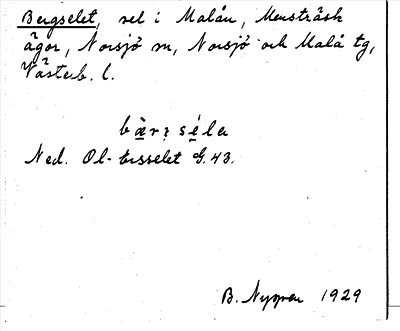 Bergselet, sel i Malån, Mensträsk
ägor, Norsjö sn, Norsjö och Malå tg,
Västerb. l.
bæ̀rı̣ séla
Ned. Ol-Ersselet G. 43.
B. Nygren 1929